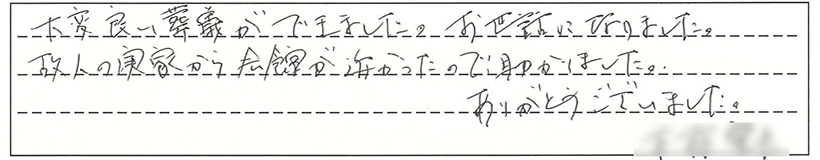 大変良い葬儀ができました。お世話になりました。
故人の実家から会館が近かったので助かりました。
ありがとうございました。